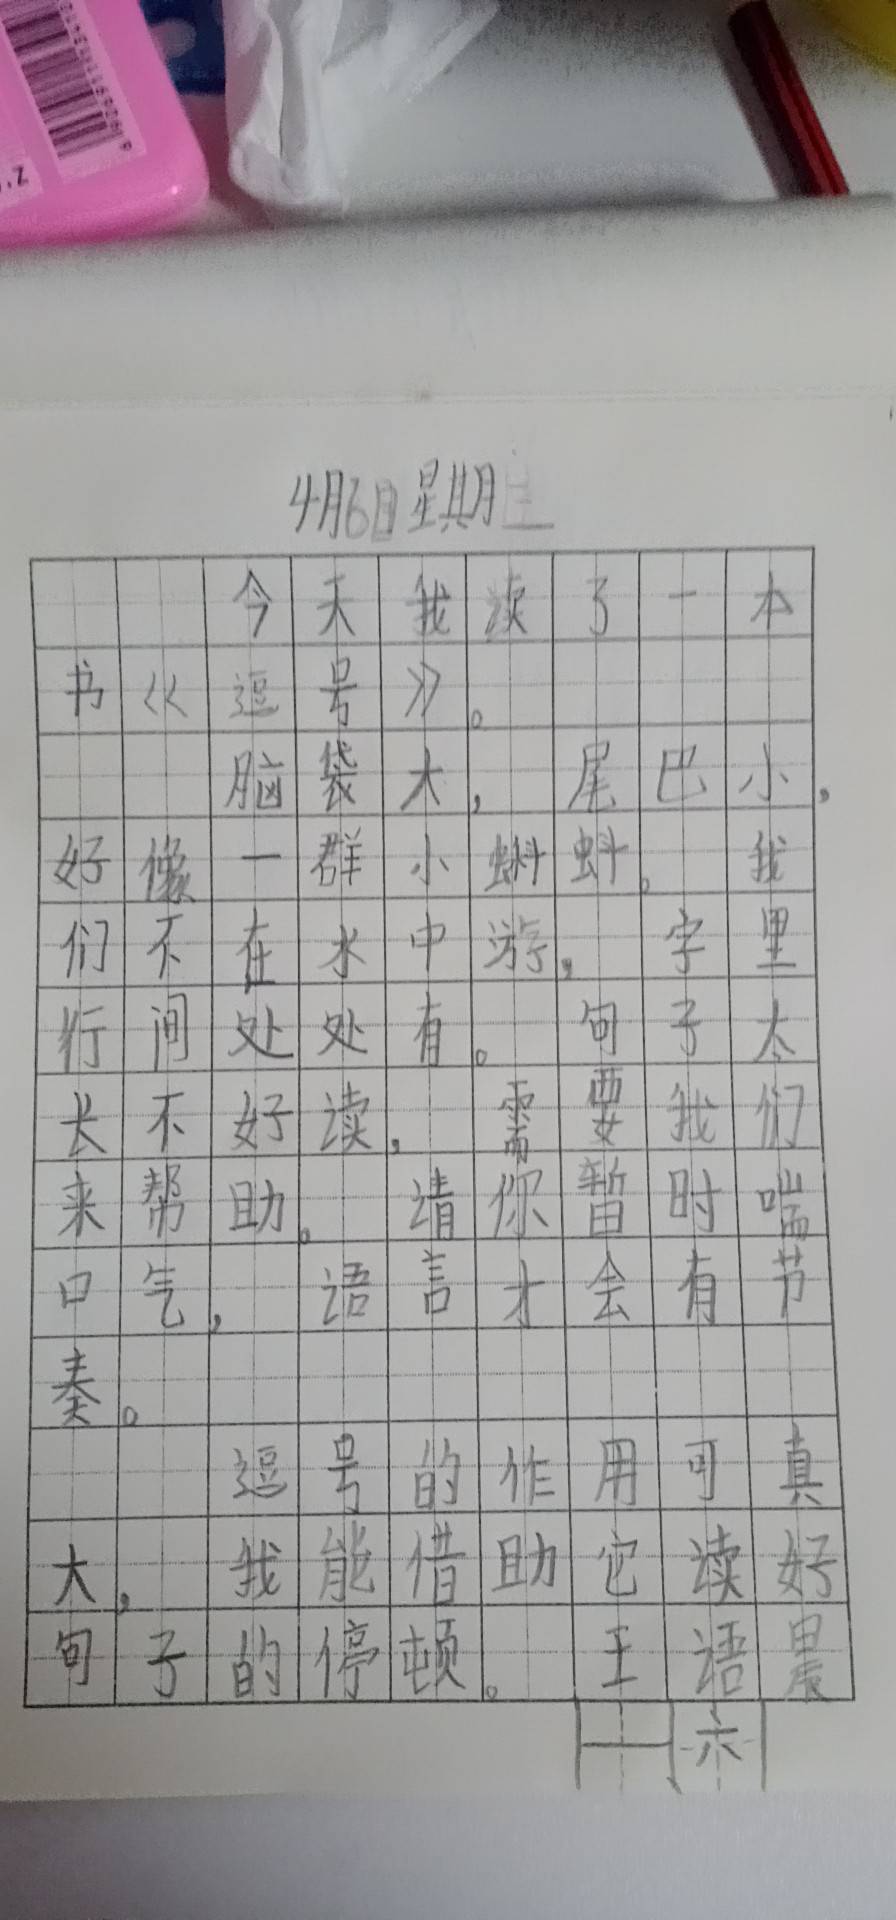 4月6日星期日
今天我读了一本
书《逗号》。
脑袋大，尾巴小，
好像一群小蝌蚪。我
们不在水中游，字里
行间处处有。句子太
长不好读，需要我们
来帮助。请你暂时喘
口气，语言才会有节
奏。
逗号的作用可真
大，我能借助它读好
句子的停顿。王语晨
一六